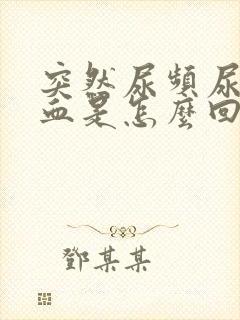 突然尿頻尿
血是怎麼回
鄧某某